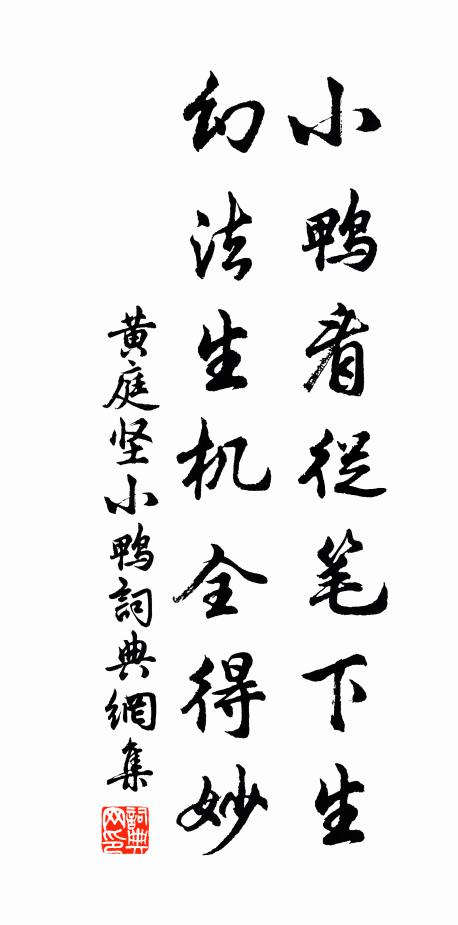 小鸭看從笔下生
幻法生机全得妙
黄庭坚小鸭詞典網集
詞典网印